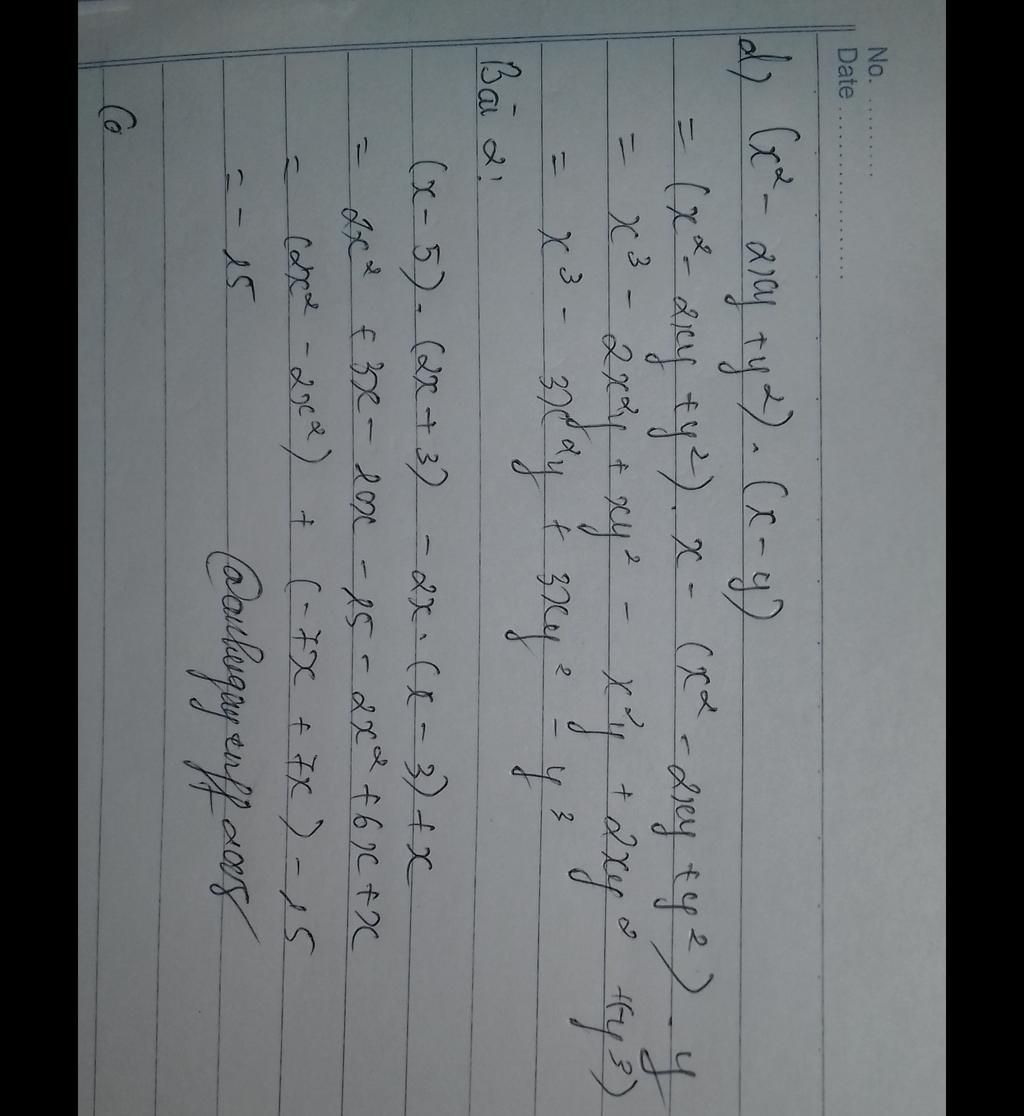 No. ............
Date ........................
d) (x² - 2xy + y²) . (x - y)
= (x² - 2xy + y²) . x - (x² - 2xy + y²) . y
= x³ - 2x²y + xy² - x²y + 2xy² + (-y³)
= x³ - 3x²y + 3xy² - y³
Bài 2:
(x - 5) . (2x + 3) - 2x . (x - 3) + x
= 2x² + 3x - 10x - 15 - 2x² + 6x + x
= (2x² - 2x²) + (-7x + 7x) - 15
= - 15